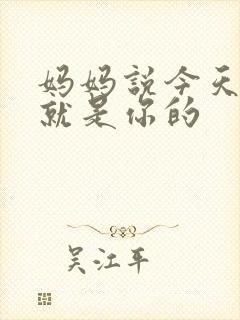 妈妈説今天
就是你的
吴江平